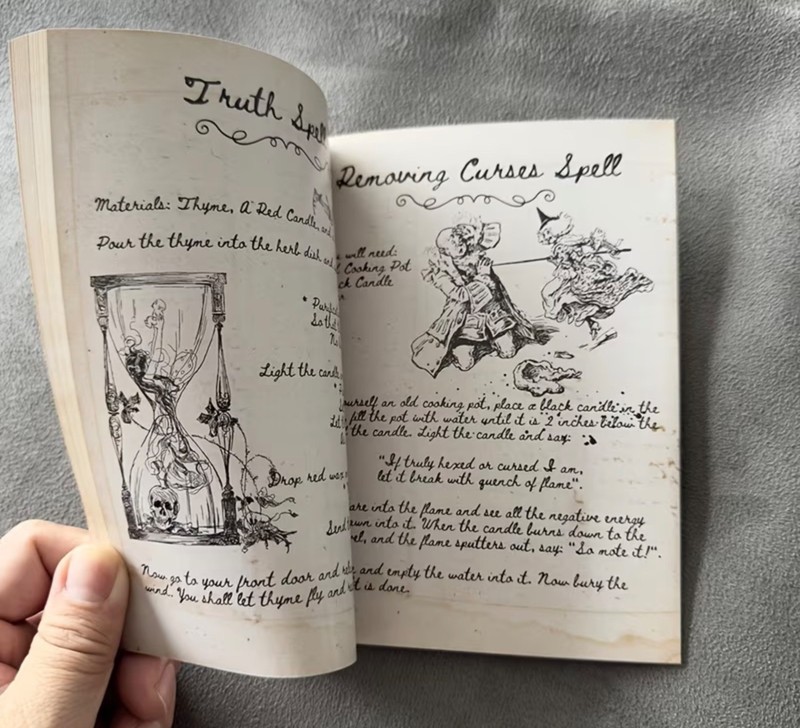 Truth Spell
Materials: Thyme, A Red Candle, and
Pour the thyme into the herb dish and
So that
Light the candle
Drop red wax
Send
Now go to your front door and
wind.. You shall let thyme fly and
Removing Curses Spell
will need:
Cooking Pot
Candle
an old cooking pot, place a black candle in the
fill the pot with water until it is 2 inches below the
the candle. Light the candle and say:
"If truly hexed or cursed I am,
let it break with quench of flame".
into the flame and see all the negative energy
into it. When the candle burns down to the
and the flame sputters out, say: "So mote it!".
and empty the water into it. Now bury the
it is done.